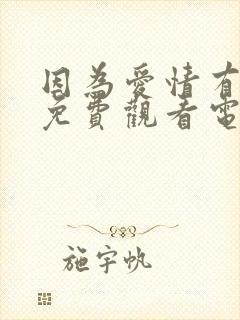 因為愛情有
免費觀看電
施宇帆